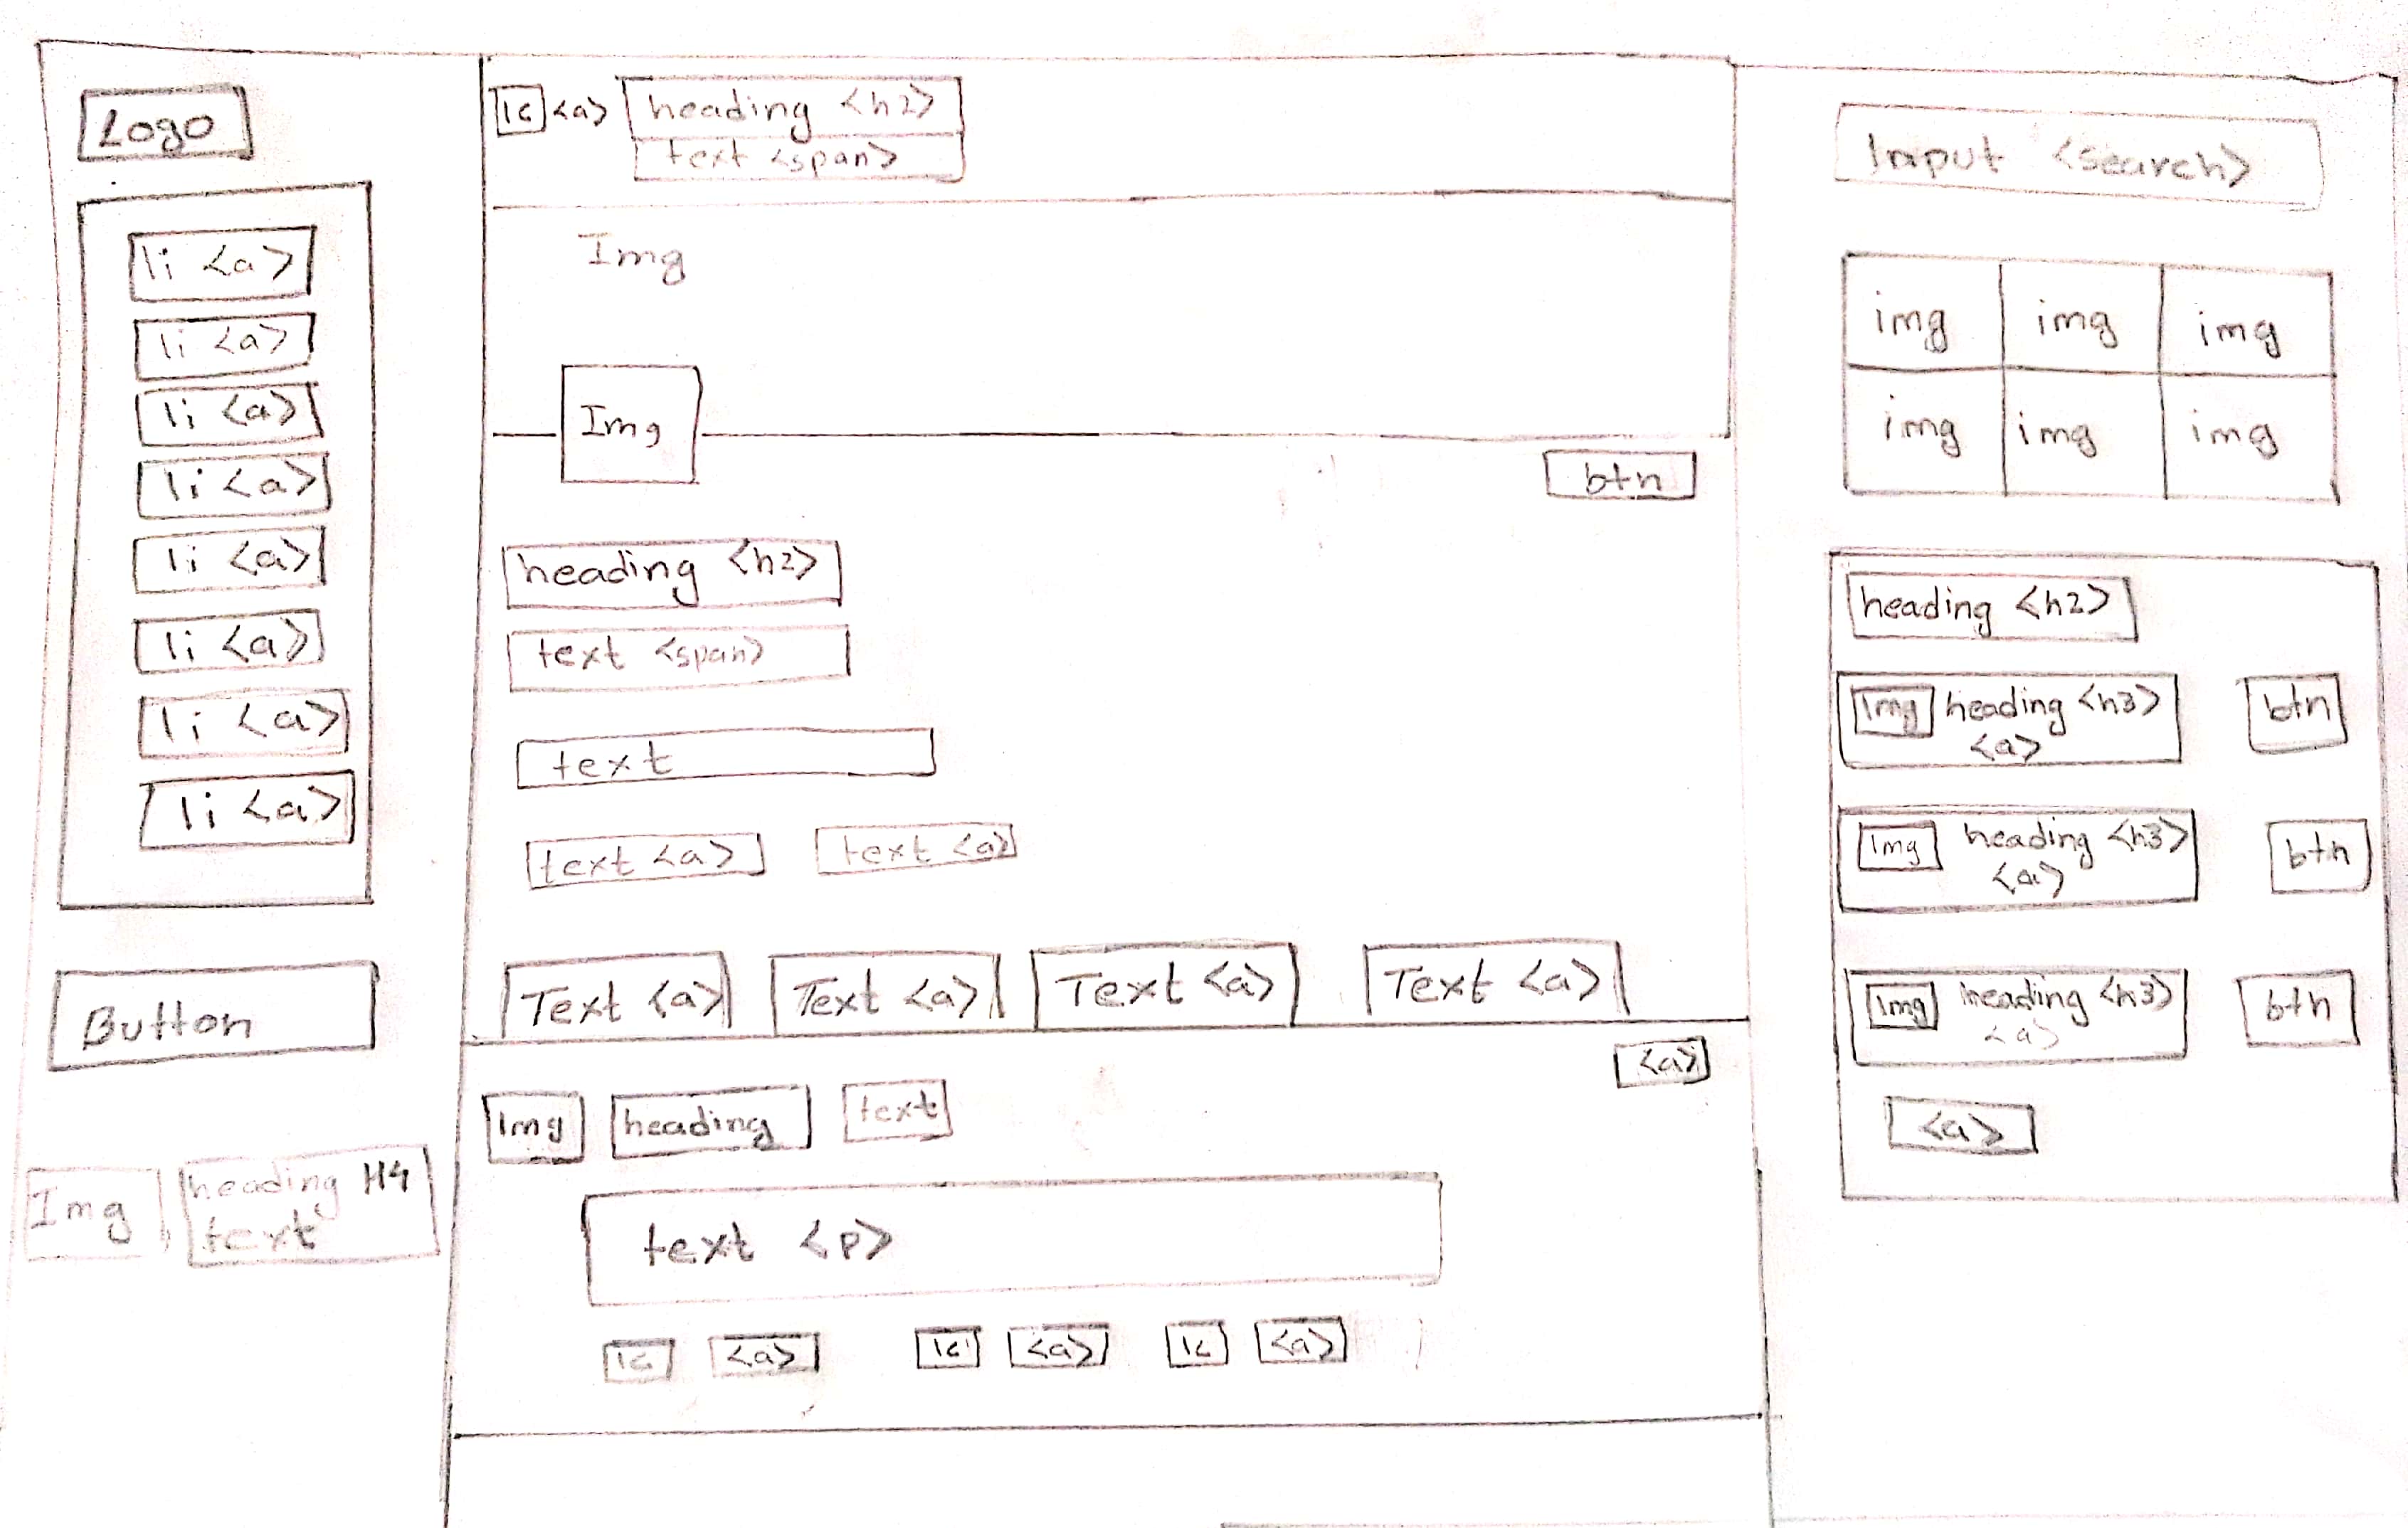 Logo
li <a>
li <a>
li <a>
li <a>
li <a>
li <a>
li <a>
li <a>
Button
Img
heading H4
text
Ic <a> heading <h2>
text <span>
Img
Img
btn
heading <h2>
text <span>
text
text <a> text <a>
Text <a> Text <a> Text <a> Text <a>
<a>
Img heading text
text <p>
Ic <a> Ic <a> Ic <a>
Input <search>
img img img
img img img
heading <h2>
Img heading <h3> btn
<a>
Img heading <h3> btn
<a>
Img heading <h3> btn
<a>
<a>